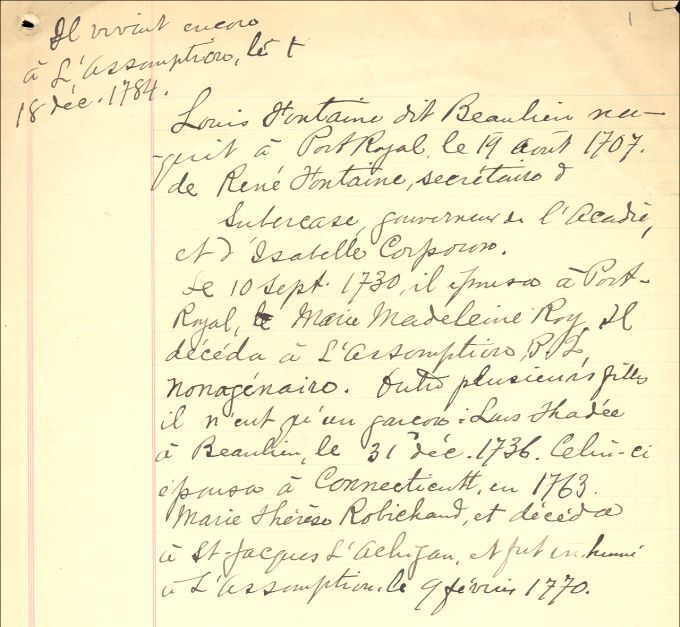 1
Il vivait encore
à L'Assomption, le
18 déc. 1784.
Louis Fontaine dit Beaulieu na-
quit à Port Royal, le 19 août 1707.
de René Fontaine, secrétaire d
Subercase, gouverneur de l'Acadie,
et d'Isabelle Corporon.
Le 10 Sept. 1730, il épousa à Port-
Royal, le Marie Madeleine Roy. Il
décéda à L'Assomption, P.Q.,
nonagénaire. Outre plusieurs filles
il n'eut qu'un garçon : Louis Thadée
à Beaulieu, le 31 déc. 1736. Celui-ci
épousa à Connecticutt, en 1763.
Marie Thérèse Robichaud, et décéda
à St Jacques L'Achigan, et fut inhumé
à L'Assomption, le 9 février 1770.